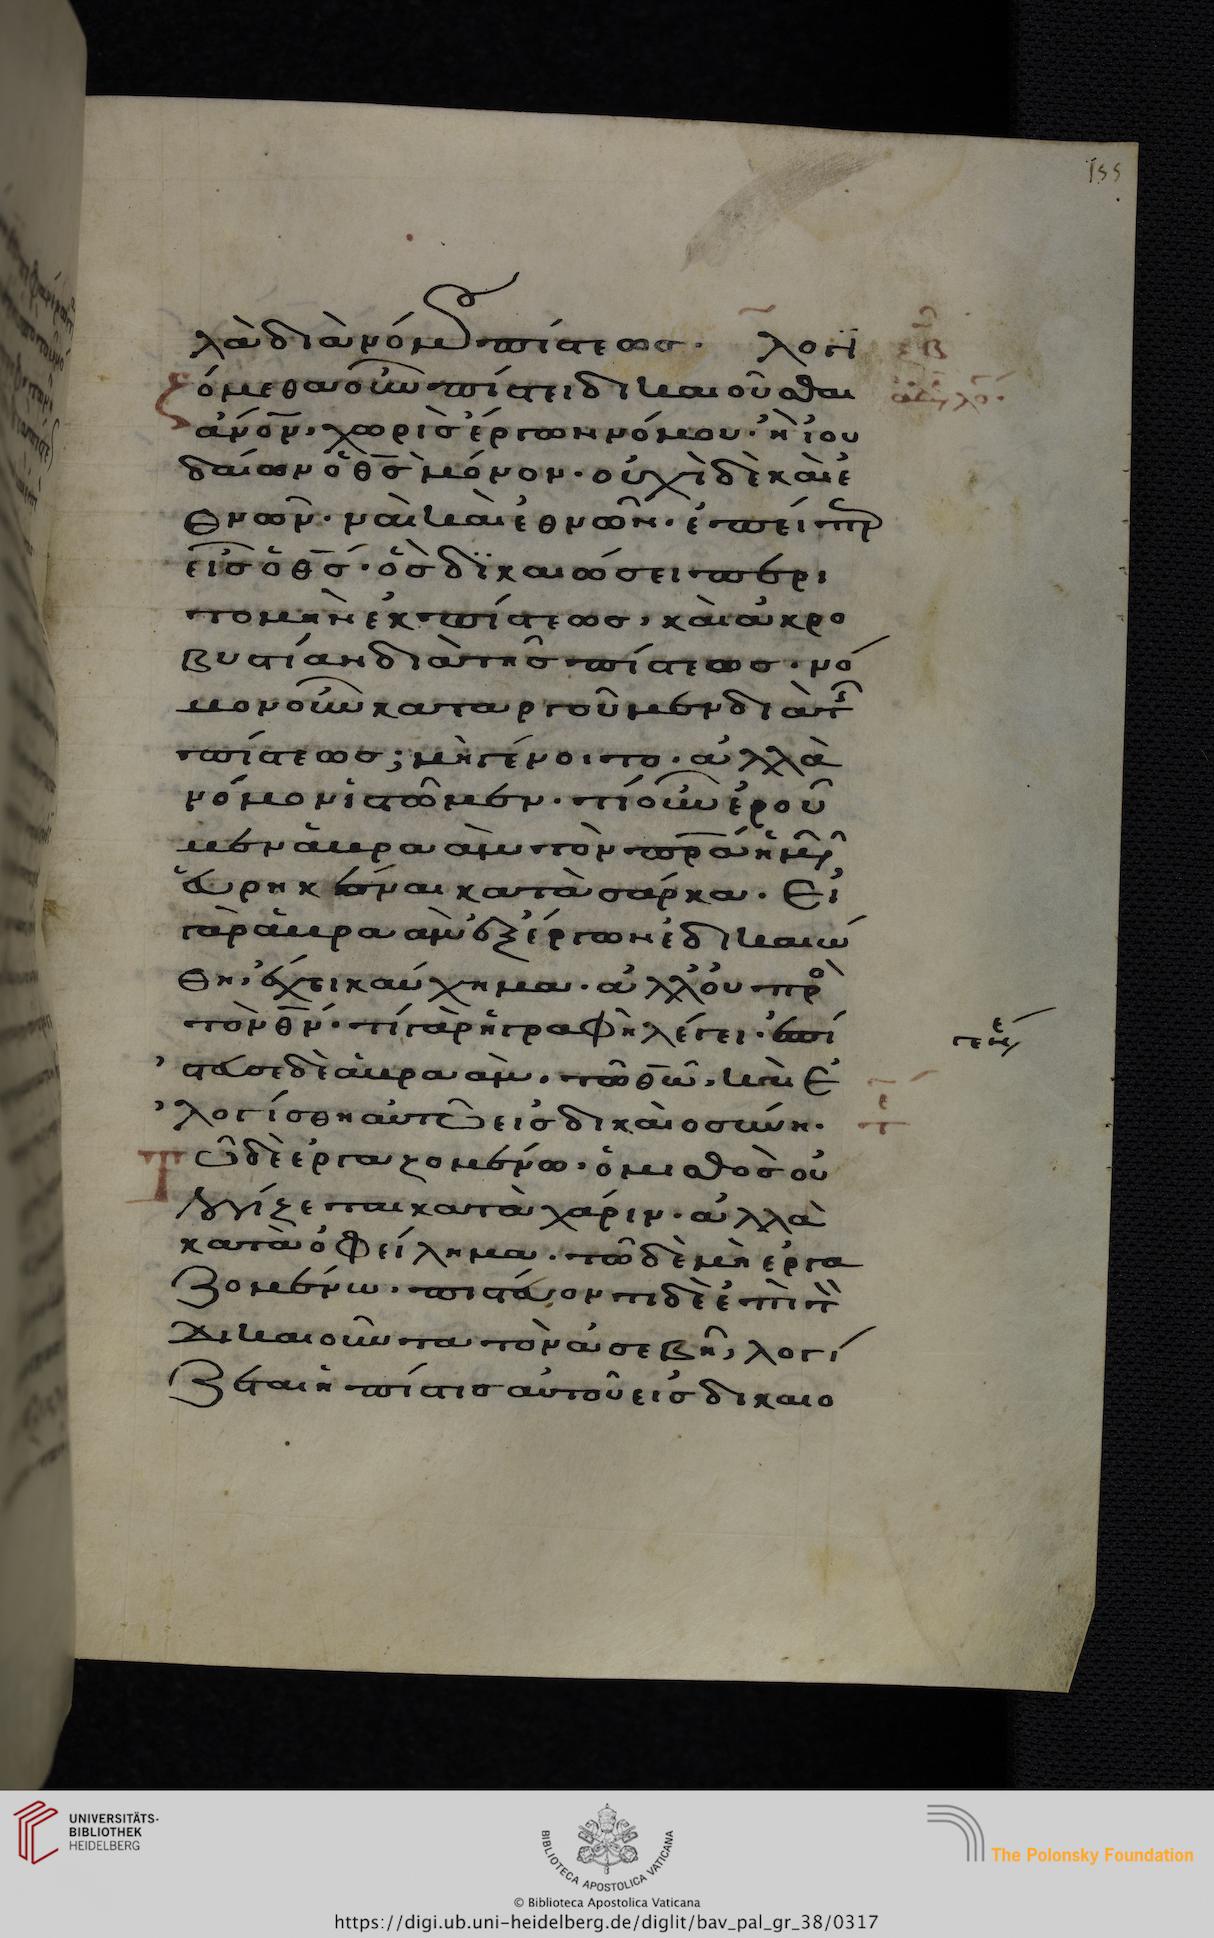 155
λὰ διὰ νόμου πίστεως· λογι
ζόμεθα οὖν πίστει δικαιοῦσθαι
ἄν̅ο̅ν̅, χωρὶς ἔργων νόμου· ἢ ἰου
δαίων ὁ θ̅ς̅ μόνον· οὐχὶ δὲ καὶ ἐ
θνῶν· ναὶ καὶ ἐθνῶν· ἐπείπερ
εἷς ὁ θ̅ς̅· ὃς δϊκαιώσει περι
τομὴν ἐκ πίστεως, καὶ ἀκρο
βυστίαν διὰ τῆς πίστεως· νό
μον οὖν καταργοῦμεν διὰ τῆς
πίστεως; μὴ γένοιτο· ἀλλὰ
νόμον ἱστῶμεν· τί οὖν ἐροῦ
μεν ἁβραὰμ τὸν π̅ρ̅α̅ ἡμῶν
εὑρηκέναι κατὰ σάρκα· Εἰ
γὰρ ἁβραὰμ ἐξ ἔργων ἐδικαιώ
θη, ἔχει καύχημα· ἀλλ' οὐ πρὸς
τὸν θ̅ν̅· τί γὰρ ἡ γραφὴ λέγει· ἐπί
στευσε δὲ ἁβραὰμ τῶ θ̅ω̅, καὶ Ἐ
λογίσθη αὐτῶ εἰς δικαιοσύνη·
Τῶ δὲ ἐργαζομένω· ὁ μισθὸς οὐ
λογίζεται κατὰ χάριν· ἀλλὰ
κατὰ ὀφείλημα· τῶ δὲ μὴ ἐργα
ζομένω· πιστεύοντι δὲ ἐπὶ τὸν
δικαιοῦντα τὸν ἀσεβῆ, λογί
ζεται ἡ πίστις αὐτοῦ εἰς δικαιο
UNIVERSITÄTS-
BIBLIOTHEK
HEIDELBERG
BIBLIOTECA APOSTOLICA VATICANA
The Polonsky Foundation
© Biblioteca Apostolica Vaticana
https://digi.ub.uni-heidelberg.de/diglit/bav_pal_gr_38/0317